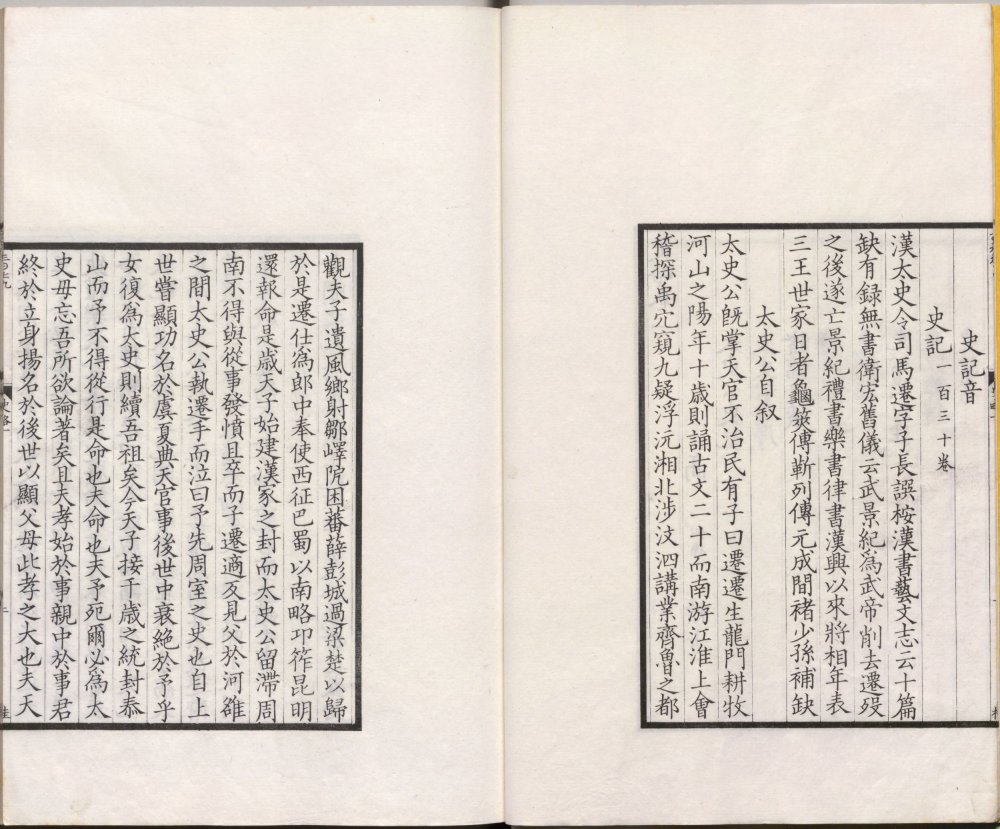 史記音
史記一百三十卷
漢太史令司馬遷字子長譔桉漢書藝文志云十篇
缺有録無書衛宏舊儀云武景紀為武帝削去遷歿
之後遂亡景紀禮書樂書律書漢興以來將相年表
三王世家日者龜筴傳靳列傳元成間褚少孫補缺
太史公自叙
太史公既掌天官不治民有子曰遷遷生龍門耕牧
河山之陽年十歲則誦古文二十而南游江淮上會
稽探禹穴窺九疑浮沅湘北涉汶泗講業齊魯之都
觀夫子遺風鄉射鄒嶧阨困蕃薛彭城過梁楚以歸
於是遷仕為郎中奉使西征巴蜀以南略邛筰昆明
還報命是歲天子始建漢家之封而太史公留滯周
南不得與從事發憤且卒而子遷適反見父於河雒
之間太史公執遷手而泣曰予先周室之史也自上
世嘗顯功名於虞夏典天官事後世中衰絕於予乎
女復為太史則續吾祖矣今天子接千歲之統封泰
山而予不得從行是命也夫命也夫予死爾必為太
史毋忘吾所欲論著矣且夫孝始於事親中於事君
終於立身揚名於後世以顯父母此孝之大也夫天